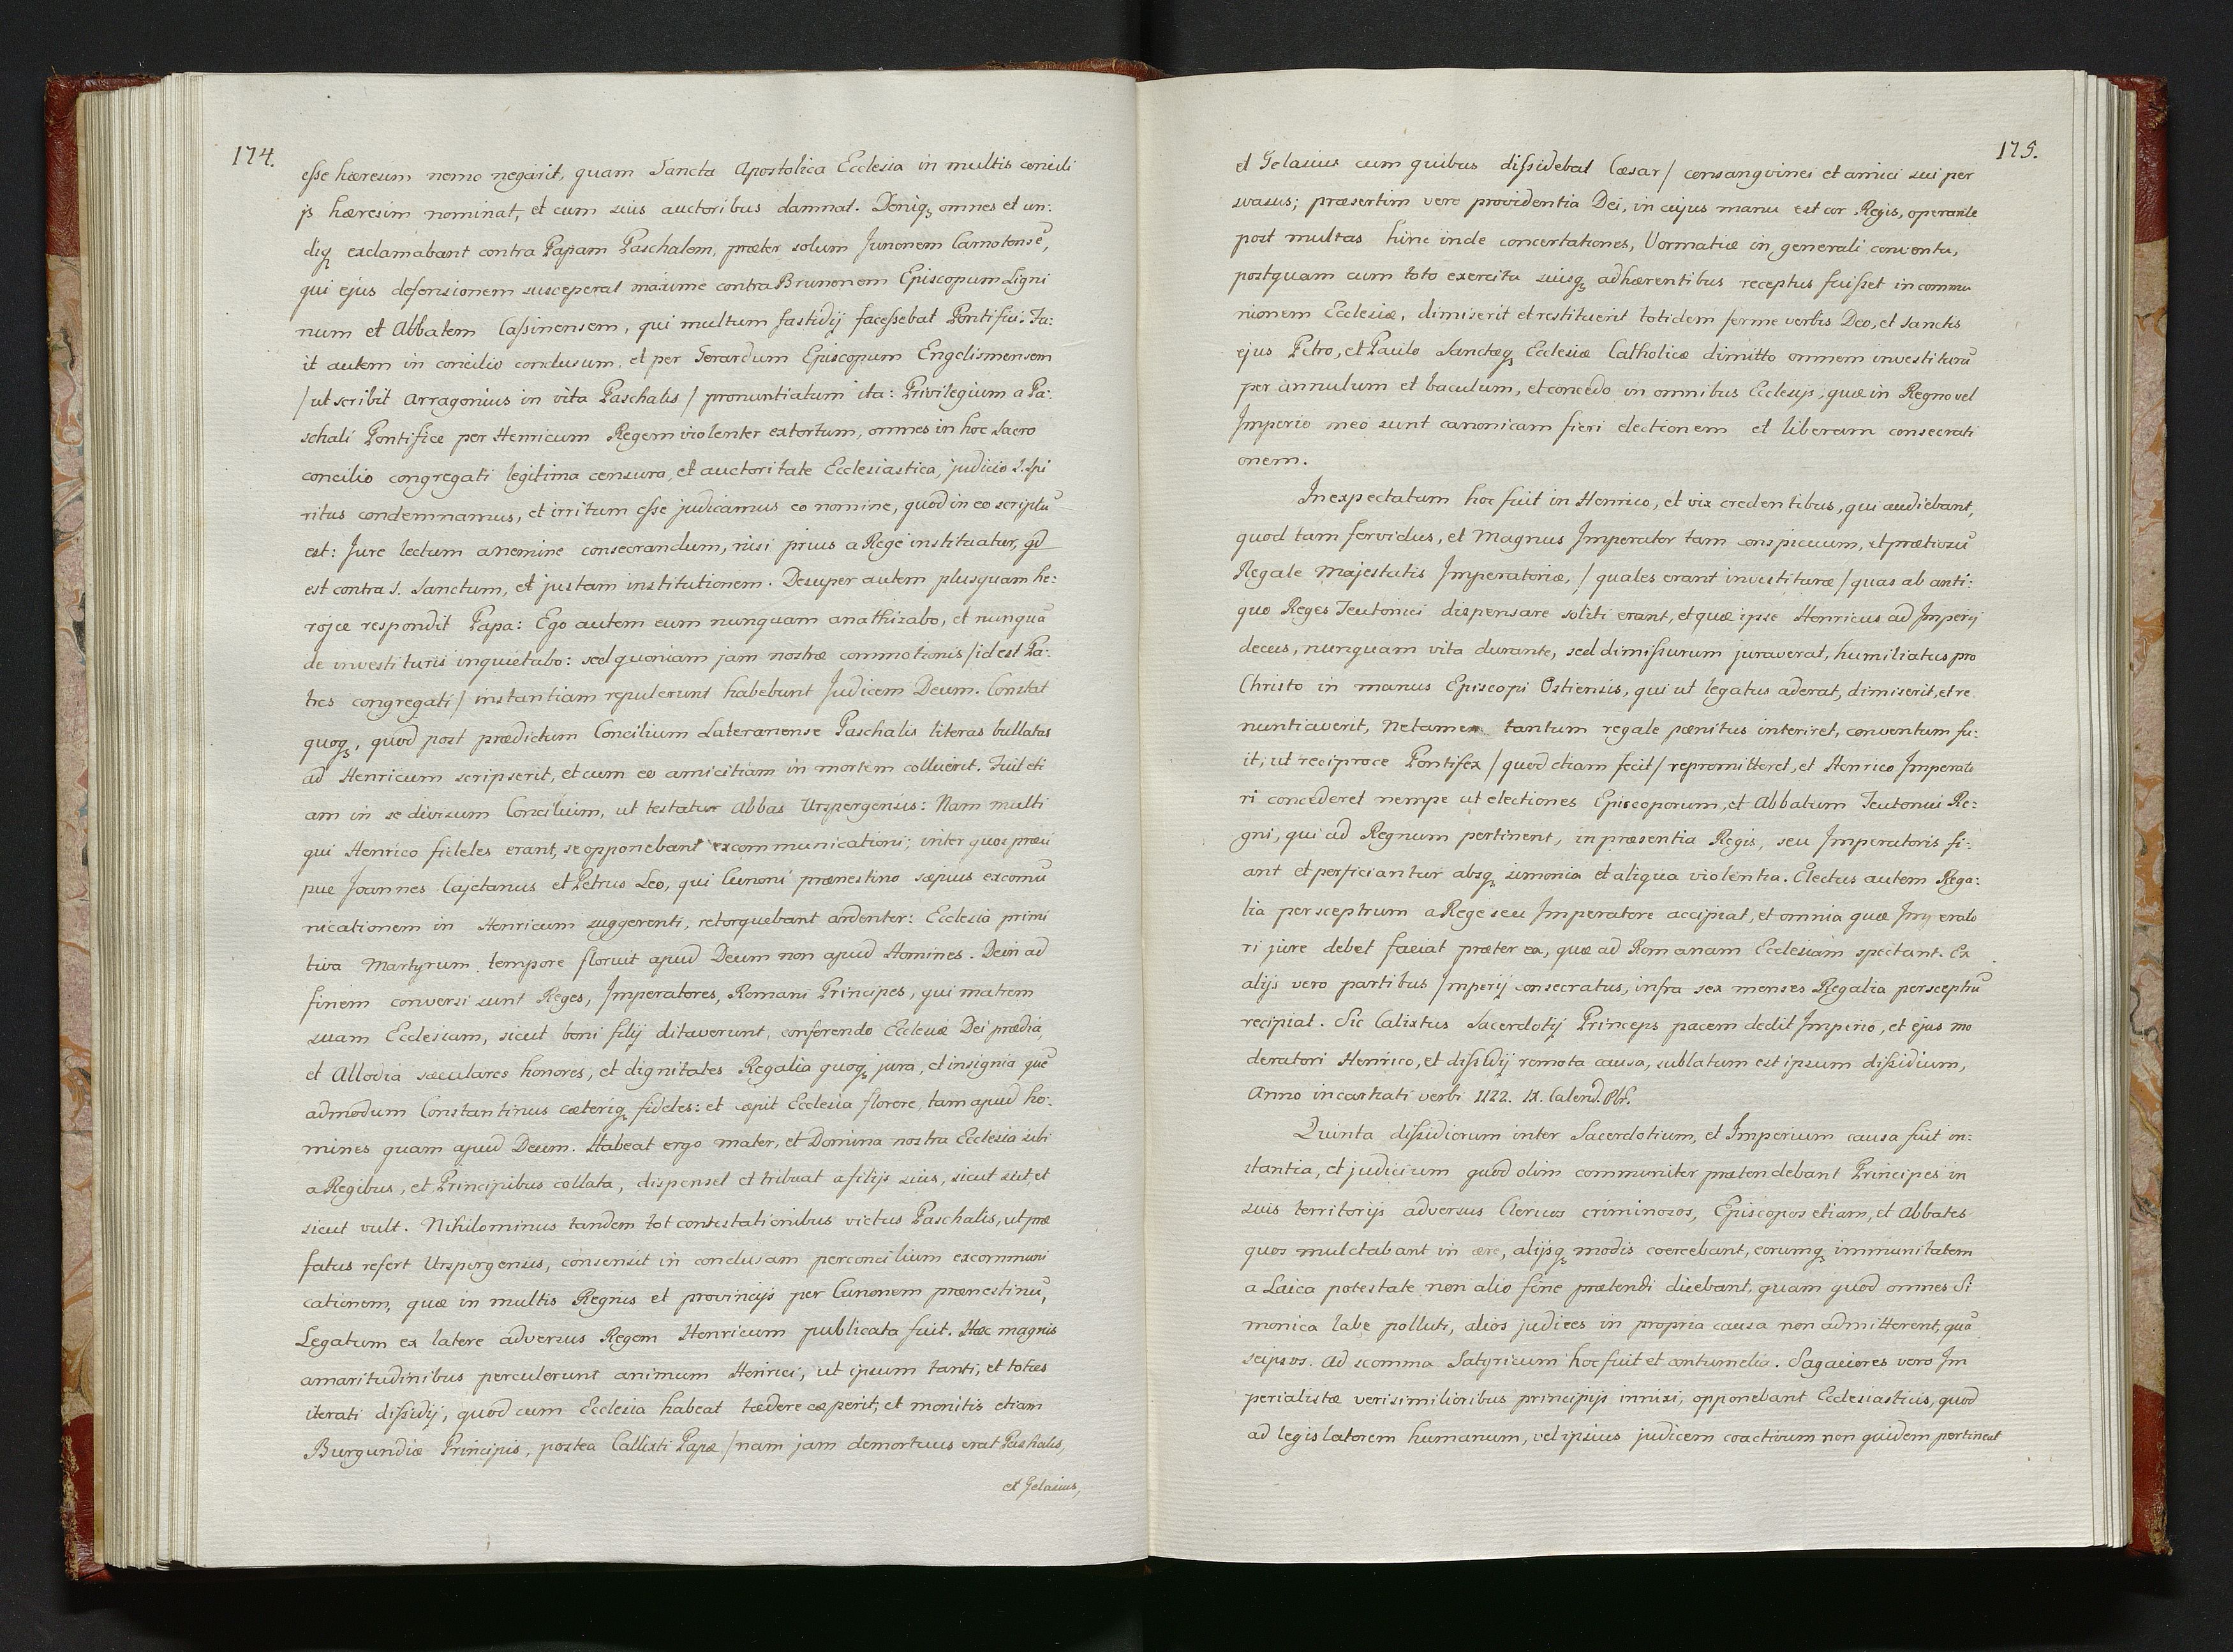 174.
esse hæresim nemo negarit, quam Sancta Apostolica Ecclesia in multis concili
js hæresim nominat, et cum suis auctoribus damnat. Deniqꝫ omnes et un:
diqꝫ exclamabant contra Papam Paschalem, præter solum Junonem Carnotensē,
qui ejus defensionem susceperat maxime contra Brunonem Episcopum Signi
num et Abbatem Cassinensem, qui multum fastidij facessebat Pontifici. Fu:
it autem in concilio conclusum, et per Gerardum Episcopum Engelismensem
/ut scribit Arragonius in vita Paschalis/ pronuntiatum ita: Privilegium a Pa:
schali Pontifice per Henricum Regem violenter extortum, omnes in hoc sacro
concilio congregati legitima censura, et auctoritate Ecclesiastica, judicio S. Spi
ritus condemnamus, et irritum esse judicamus eo nomine, quod in eo scriptū
est: Jure lectum a nemine consecrandum, nisi prius a Rege instituatur, qd
est contra S. Sanctum, et justam institutionem. Desuper autem plusquam he:
rojce respondit Papa: Ego autem eum nunquam anathizabo, et nunquā
de investituris inquietabo: sed quoniam jam nostræ commotionis /id est Pa:
tres congregati/ instantiam repulerunt habebunt Judicem Deum. Constat
quoqꝫ, quod post prædictum Concilium Lateranense Paschalis literas bullatas
ad Henricum scripserit, et cum eo amicitiam in mortem colluerit. Fuit eti
am in se divisum Concilium, ut testatur Abbas Urspergensis: Nam multi
qui Henrico fideles erant, se opponebant excommunicationi; inter quos præci
pue Joannes Cajetanus et Petrus Leo, qui Cunoni prænestino sæpius excomū
nicationem in Henricum suggerenti, retorquebant ardenter: Ecclesia primi
tiva Martyrum tempore floruit apud Deum non apud Homines. Dein ad
finem conversi sunt Reges, Imperatores, Romani Principes, qui matrem
suam Ecclesiam, sicut boni filij ditaverunt, conferendo Ecclesiæ Dei prædia,
et Allodia sæculares honores, et dignitates Regalia quoqꝫ jura, et insignia quē
admodum Constantinus cæteriqꝫ fideles: et cæpit Ecclesia florere, tam apud ho:
mines quam apud Deum. Habeat ergo mater, et Domina nostra Ecclesia sibi
a Regibus, et Principibus collata, dispenset et tribuat a filijs suis, sicut scit et
sicut vult. Nihilominus tandem tot contestationibus victus Paschalis, ut præ
fatus refert Urspergensis, consensit in conclusam per concilium excommuni
cationem, quæ in multis Regnis et provincijs per Cunonem prænestinū,
Legatum ex latere adversus Regem Henricum publicata fuit. Hæc magnis
amaritudinibus perculerunt animum Henrici, ut ipsum tanti, et toties
iterati dissidij, quod cum Ecclesia habeat tædere cæperit, et monitis etiam
Burgundiæ Principis, postea Callixti Papæ /nam jam demortuus erat Paschalis,
et Gelasius,
175.
et Gelasius cum quibus dissidebat Cæsar/ consangvinei et amici sui per
svasus; præsertim vero providentia Dei, in cujus manu est cor Regis, operante
post multas hinc inde concertationes, Vormatiæ in generali conventu,
postquam cum toto exercitu suisqꝫ adhærentibus receptus fuisset in commu
nionem Ecclesiæ, dimiserit et restituerit totidem ferme verbis Deo, et Sanctis
ejus Petro, et Paulo Sanctæqꝫ Ecclesiæ Catholicæ dimitto omnem investiturū
per annulum et baculum, et concedo in omnibus Ecclesijs, quæ in Regno vel
Imperio meo sunt canonicam fieri electionem et liberam consecrati
onem.
Inexpectatum hoc fuit in Henrico, et vix credentibus, qui audiebant,
quod tam fervidus, et Magnus Imperator tam conspicuum, et prætiosū
Regale Majestatis Imperatoriæ, /quales erant investituræ/ quas ab anti:
quo Reges Teutonici dispensare soliti erant, et quæ ipse Henricus ad Imperij
decus, nunquam vita durante, sed dimissurum juraverat, humiliatus pro
Christo in manus Episcopi Ostiensis, qui ut legatus aderat, dimiserit, et re
nuntiaverit, Ne tamen tantum regale pænitus interiret, conventum fu:
it, ut reciproce Pontifex /quod etiam fecit/ repromitteret, et Henrico Imperato
ri concederet nempe ut electiones Episcoporum, et Abbatum Teutonici Re:
gni, qui ad Regnum pertinent, in præsentia Regis, seu Imperatoris fi:
ant et perficiantur absqꝫ simonia et aliqua violentia. Electus autem Rega:
lia per sceptrum a Rege seu Imperatore accipiat, et omnia quæ Imperato
ri jure debet faciat præter ea, quæ ad Romanam Ecclesiam spectant. Ex
alijs vero partibus Imperij consecratus, infra sex menses Regalia per sceptrū
recipiat. Sic Calixtus Sacerdotij Princeps pacem dedit Imperio, et ejus mo
deratori Henrico, et dissidij remota causa, sublatum est ipsum dissidium,
Anno incarnati verbi 1122. IX. Calend. 8br.
Quinta dissidiorum inter Sacerdotium, et Imperium causa fuit in:
stantia, et judicium quod olim communiter prætendebant Principes in
suis territorijs adversus Clericos criminosos, Episcopos etiam, et Abbates
quos mulctabant in ære, alijsqꝫ modis coercebant, eorumqꝫ immunitatem
a Laica potestate non alio fine prætendi dicebant, quam quod omnes Si
monica labe polluti, alios judices in propria causa non admitterent, quā
seipsos. Ad scomma Satyricum hoc fuit et contumelia. Sagaciores vero Im
perialistæ verisimilioribus principijs innixi, opponebant Ecclesiasticis, quod
ad legislatorem humanum, vel ipsius judicem coactivum non quidem pertineat